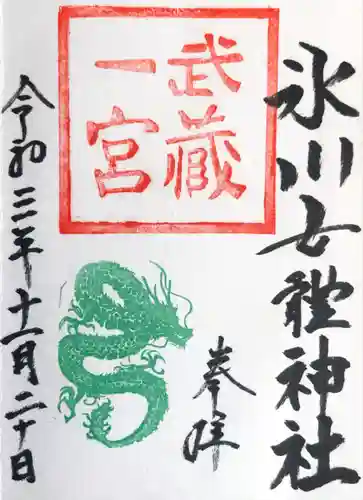 氷川女體神社
武蔵
一宮
奉拝
令和三年十一月二十日